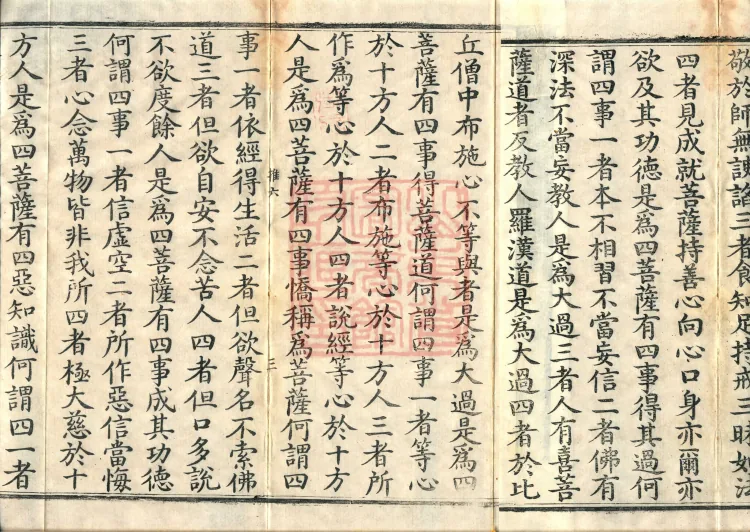 敬於師無諛諂三者食知足持戒三時如法
四者見成就菩薩持善心向心口身亦爾亦
欲及其功德是爲四菩薩有四事得其過何
謂四事一者本不相習不當妄信二者佛有
深法不當妄教人是爲大過三者人有喜菩
薩道者反教人羅漢道是爲大過四者於比
丘僧中布施心不等與者是爲大過是爲四
菩薩有四事得菩薩道何謂四事一者等心
於十方人二者布施等心於十方人三者所
作爲等心於十方人四者說經等心於十方
人是爲四菩薩有四事憍稱爲菩薩何謂四
推六 三
事一者依經得生活二者但欲聲名不索佛
道三者但欲自安不念苦人四者但口多說
不欲度餘人是爲四菩薩有四事成其功德
何謂四事一者信虛空二者所作惡信當悔
三者心念萬物皆非我所四者極大慈於十
方人是爲四菩薩有四惡知識何謂四一者